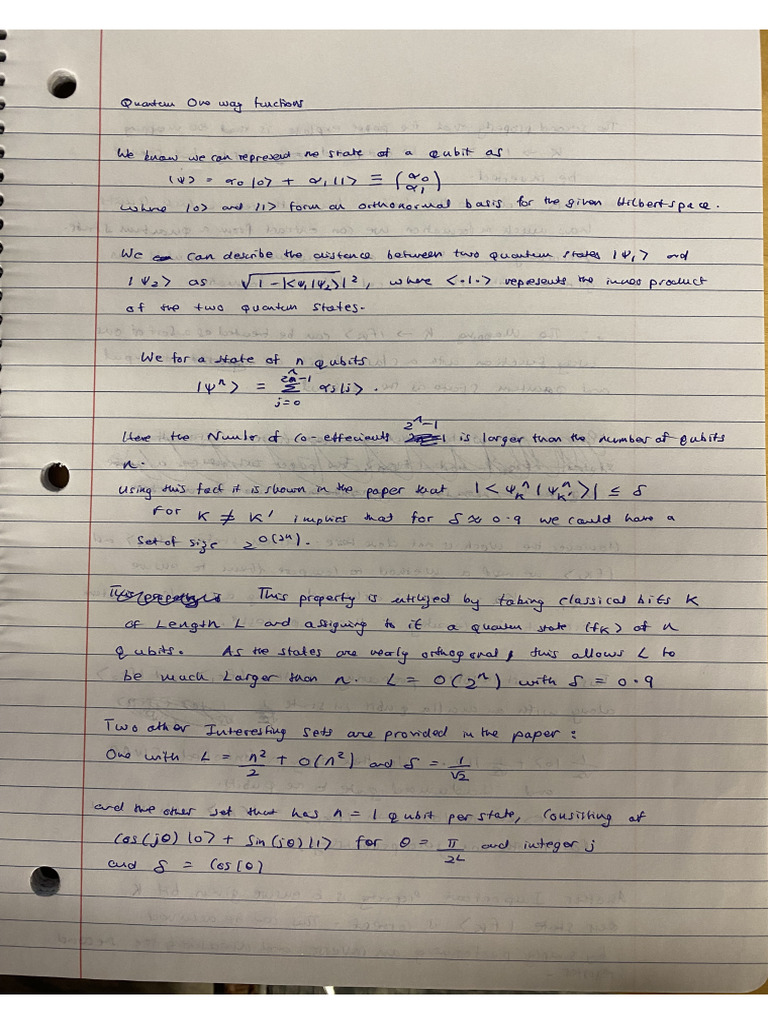 Quantum One way functions
We know we can represent the state of a qubit as
|ψ> = α₀ |0> + α₁ |1> ≡ (α₀ α₁)
where |0> and |1> form an orthonormal basis for the given Hilbert space.
We can describe the distance between two quantum states |ψ₁> and
|ψ₂> as √(1-|<ψ₁|ψ₂>|²), where <·|·> represents the inner product
of the two quantum states.
We for a state of n qubits
|ψⁿ> = Σ_{j=0}^{2ⁿ-1} αj|j>.
Here the Number of co-effecients 2ⁿ-1 is larger than the number of qubits
n.
using this fact it is shown in the paper that |<ψ_kⁿ|ψ_k'ⁿ>| ≤ δ
For K ≠ K' implies that for δ ≈ 0.9 we could have a
set of size 2^{O(2n)}.
This property is utilized by taking classical bits K
of Length L and assigning to it a quantum state (f_K> of n
qubits. As the states are nearly orthogonal, this allows L to
be much Larger than n. L = O(2ⁿ) with δ = 0.9
Two other Interesting sets are provided in the paper:
One with L = n²/2 + O(n²) and δ = 1/√2
and the other set that has n = 1 qubit per state, consisting of
Cos(jθ) |0> + Sin(jθ) |1> for θ = π/2^L and integer j
and δ = Cos(θ)